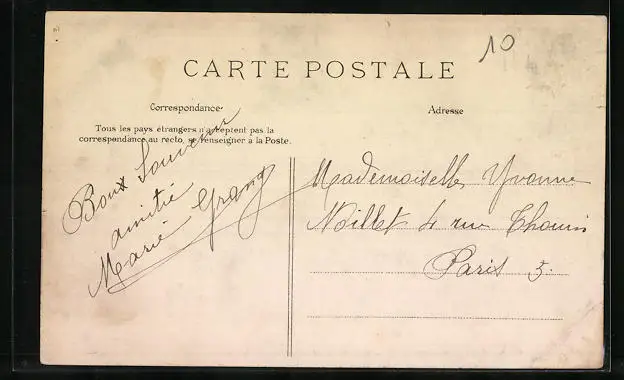 10
CARTE POSTALE
Correspondance
Tous les pays étrangers n'acceptent pas la
correspondance au recto, se renseigner à la Poste.
Adresse
Bonx Souvenir
amitié
Marie Grang
Mademoiselle Yvonne
Noillet 4 rue Thouin
Paris 5.